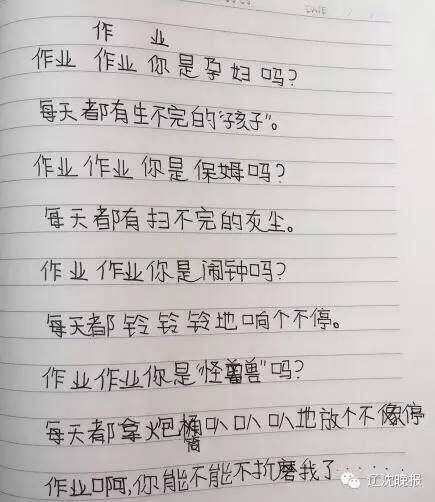 DATE
作 业
作业 作业 你是孕妇吗?
每天都有生不完的“孩子”。
作业作业你是保姆吗?
每天都有扫不完的灰尘。
作业作业你是闹钟吗?
每天都铃铃铃地响个不停。
作业作业你是“怪兽”吗?
每天都拿炮筒叭叭叭地放个不停
作业啊,你能不能不折磨我了……
辽沈晚报